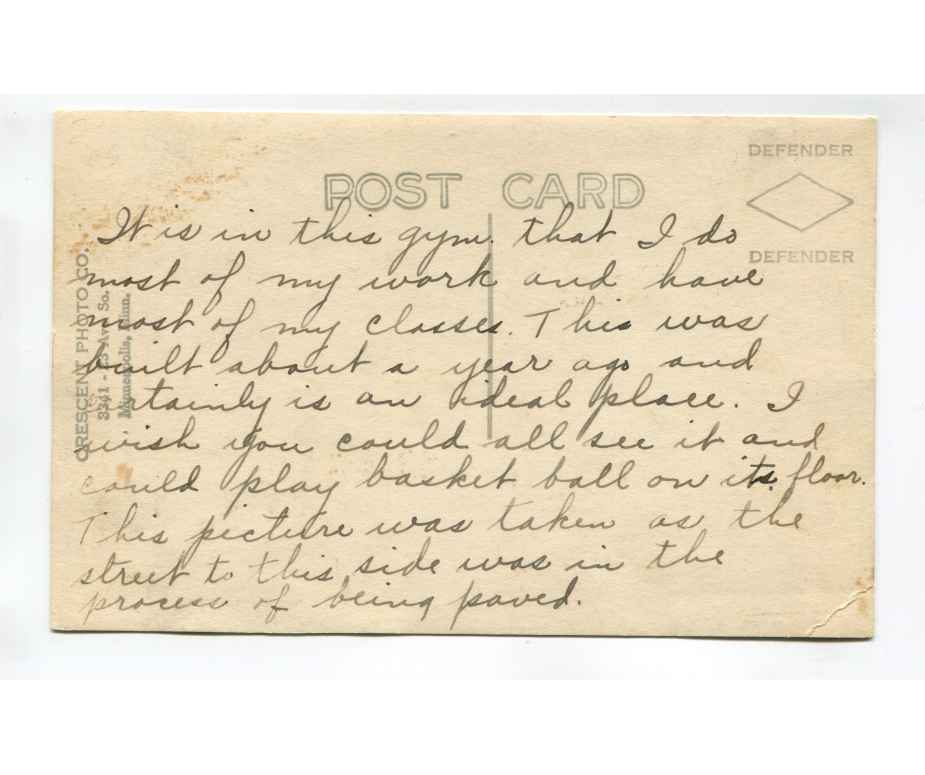 DEFENDER
POST CARD
DEFENDER
CRESCENT PHOTO CO.
3341 - 23 Ave. So.
Minneapolis, Minn.
It is in this gym. that I do
most of my work and have
most of my classes. This was
built about a year ago and
certainly is an ideal place. I
wish you could all see it and
could play basket ball on its floor.
This picture was taken as the
street to this side was in the
process of being paved.